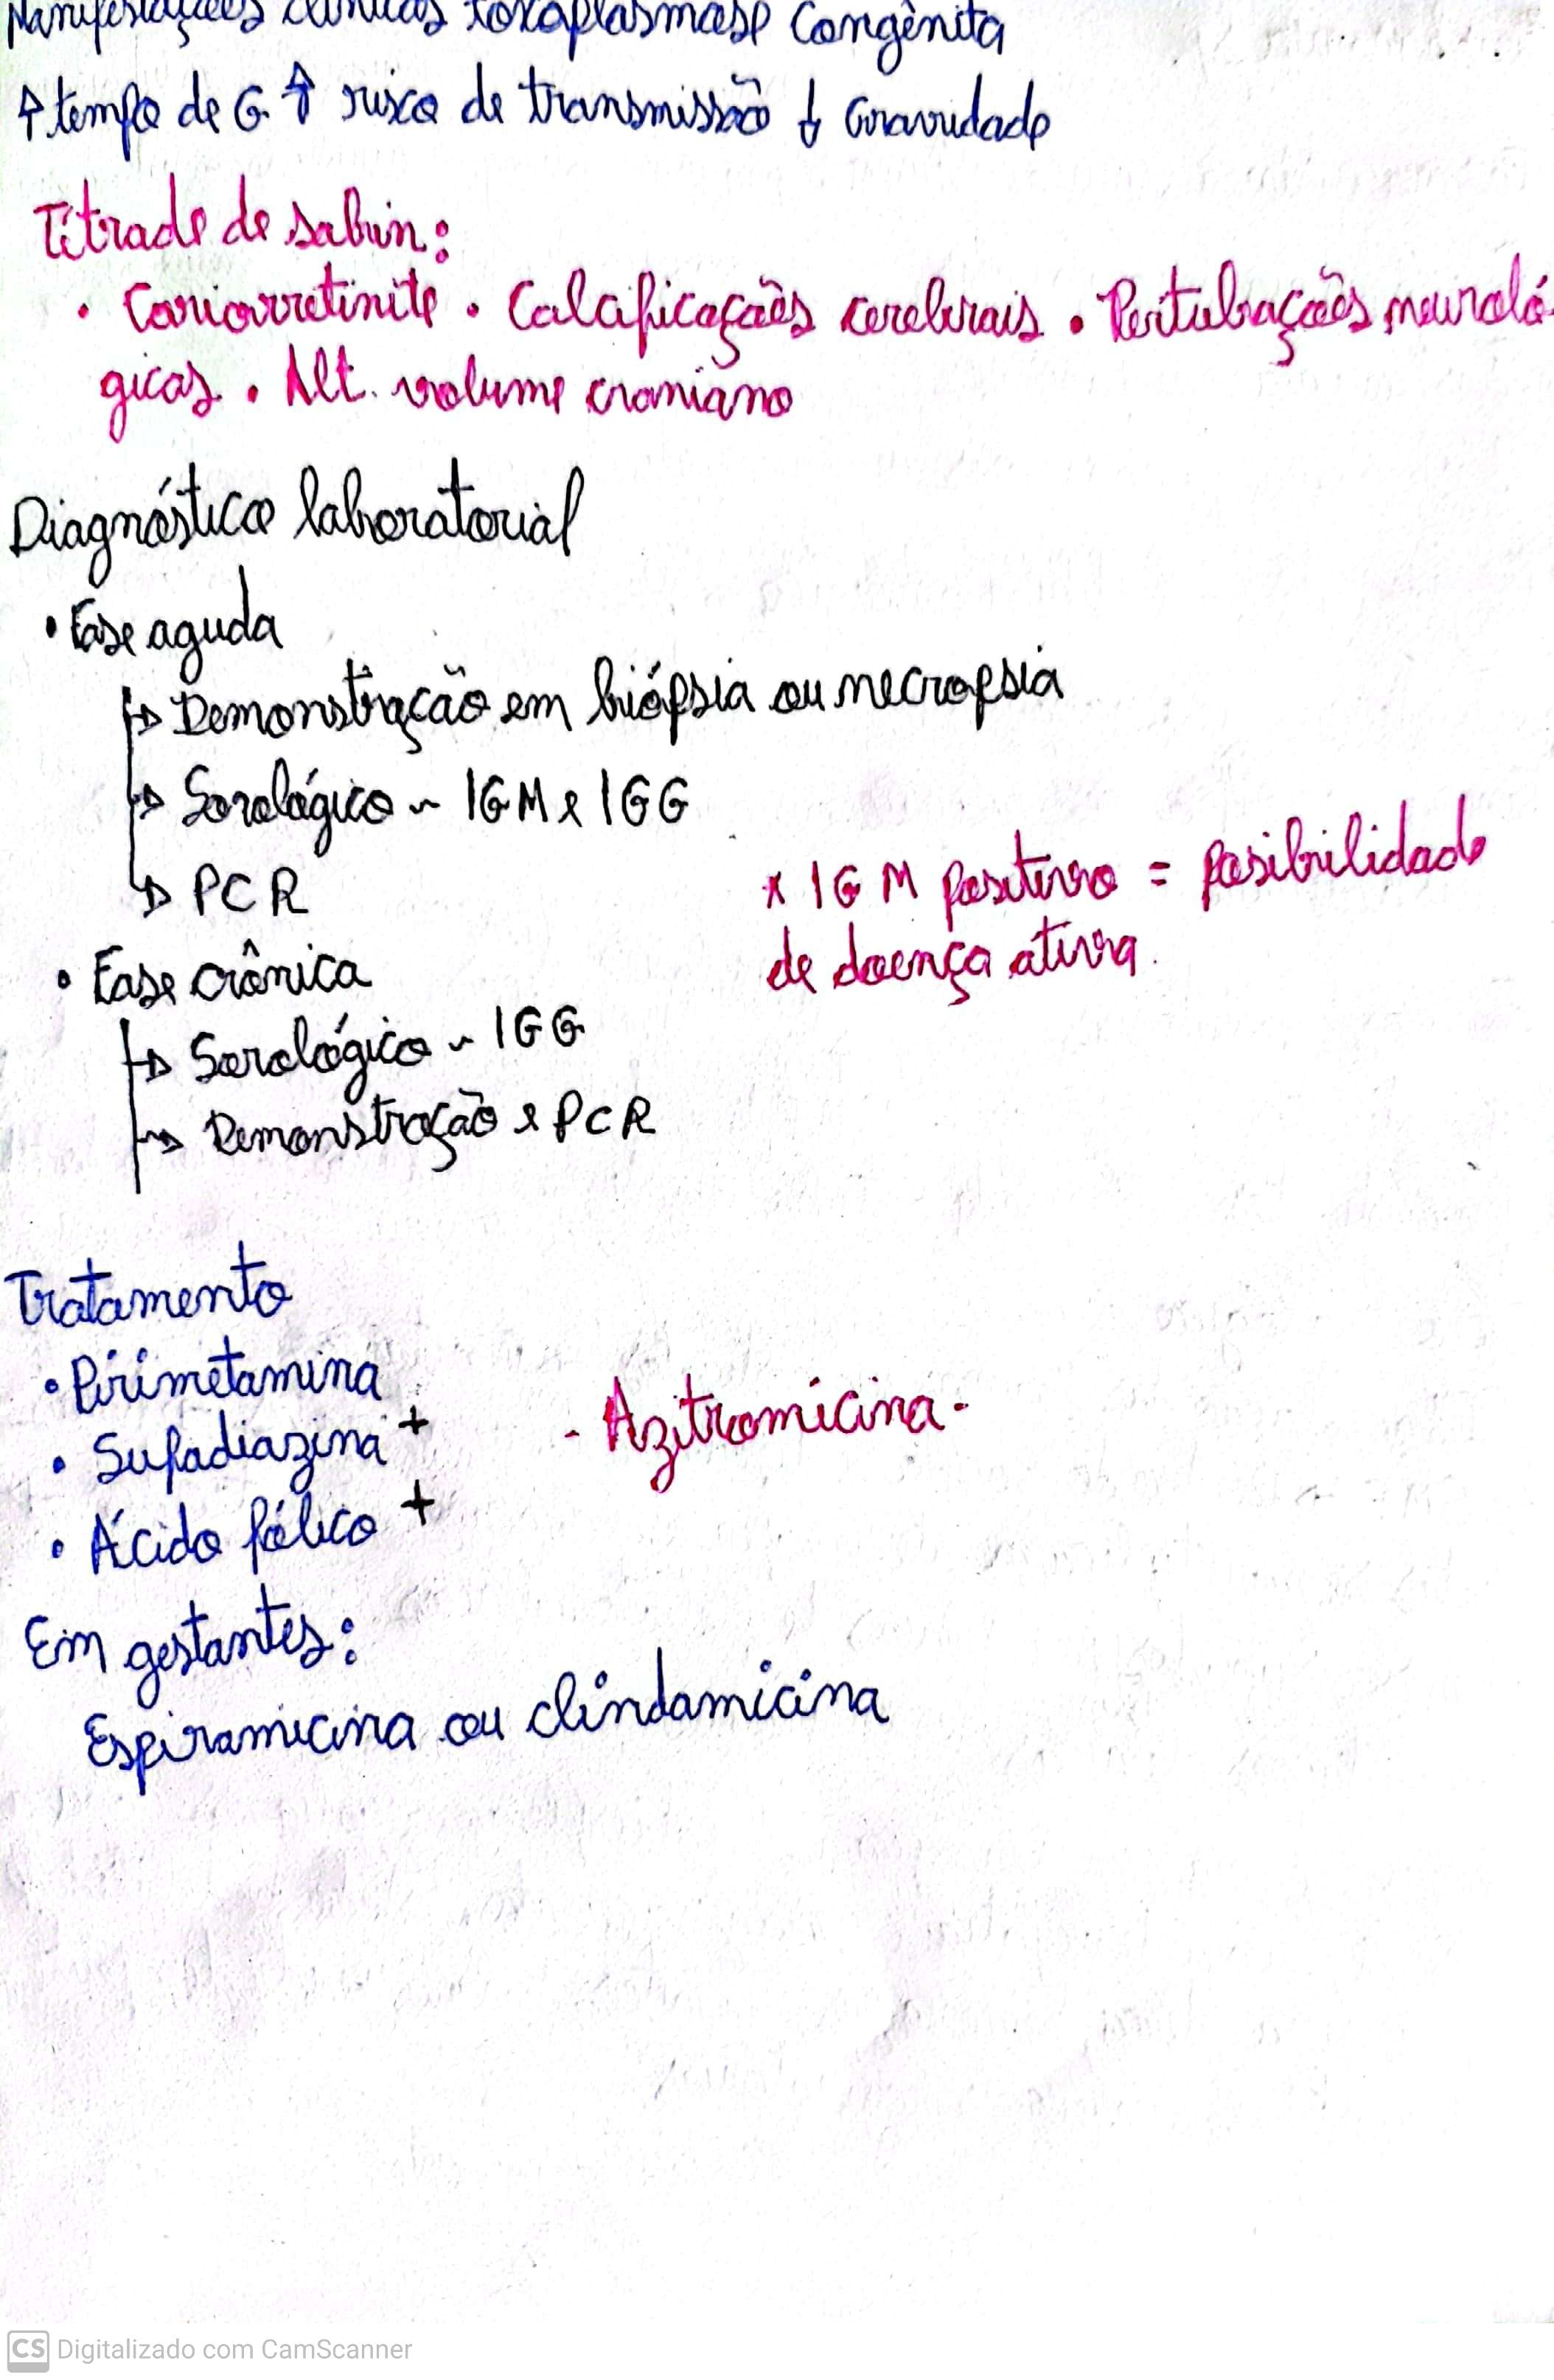 Manifestações clínicas toxoplasmose Congênita
↑ tempo de G. ↑ risco de transmissão ↓ Gravidade
Tétrade de sabin:
• Coriorretinite • Calcificações cerebrais • Pertubações neuroló-
gicas • Alt. volume craniano
Diagnóstico laboratorial
• Fase aguda
→ Demonstração em biópsia ou necropsia
→ Sorológico ~ IGM e IGG
→ PCR
* IGM positivo = posibilidade
de doença ativa.
• Fase crônica
→ Sorológico ~ IGG
→ Demonstração e PCR
Tratamento
• Pirimetamina
• Sufadiazina +
- Azitromicina -
• Ácido fólico +
Em gestantes:
Espiramicina ou clindamicina
CS Digitalizado com CamScanner